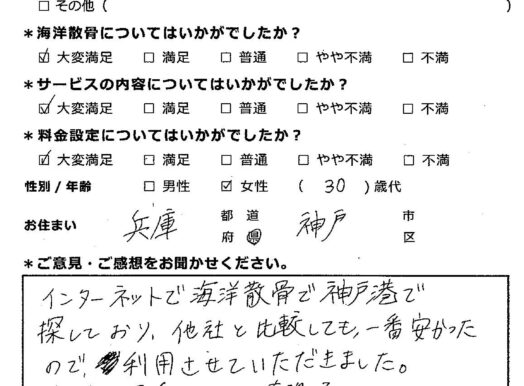 □ その他（　　　　　）
＊海洋散骨についてはいかがでしたか？
☑ 大変満足 □ 満足 □ 普通 □ やや不満 □ 不満
＊サービスの内容についてはいかがでしたか？
☑ 大変満足 □ 満足 □ 普通 □ やや不満 □ 不満
＊料金設定についてはいかがでしたか？
☑ 大変満足 □ 満足 □ 普通 □ やや不満 □ 不満
性別 / 年齢 □ 男性 ☑ 女性 （ 30 ）歳代
お住まい 兵庫 都 道 府 県 神戸 市 区
＊ご意見・ご感想をお聞かせください。
インターネットで海洋散骨で神戸港で
探しており、他社と比較しても、一番安かった
ので、利用させていただきました。